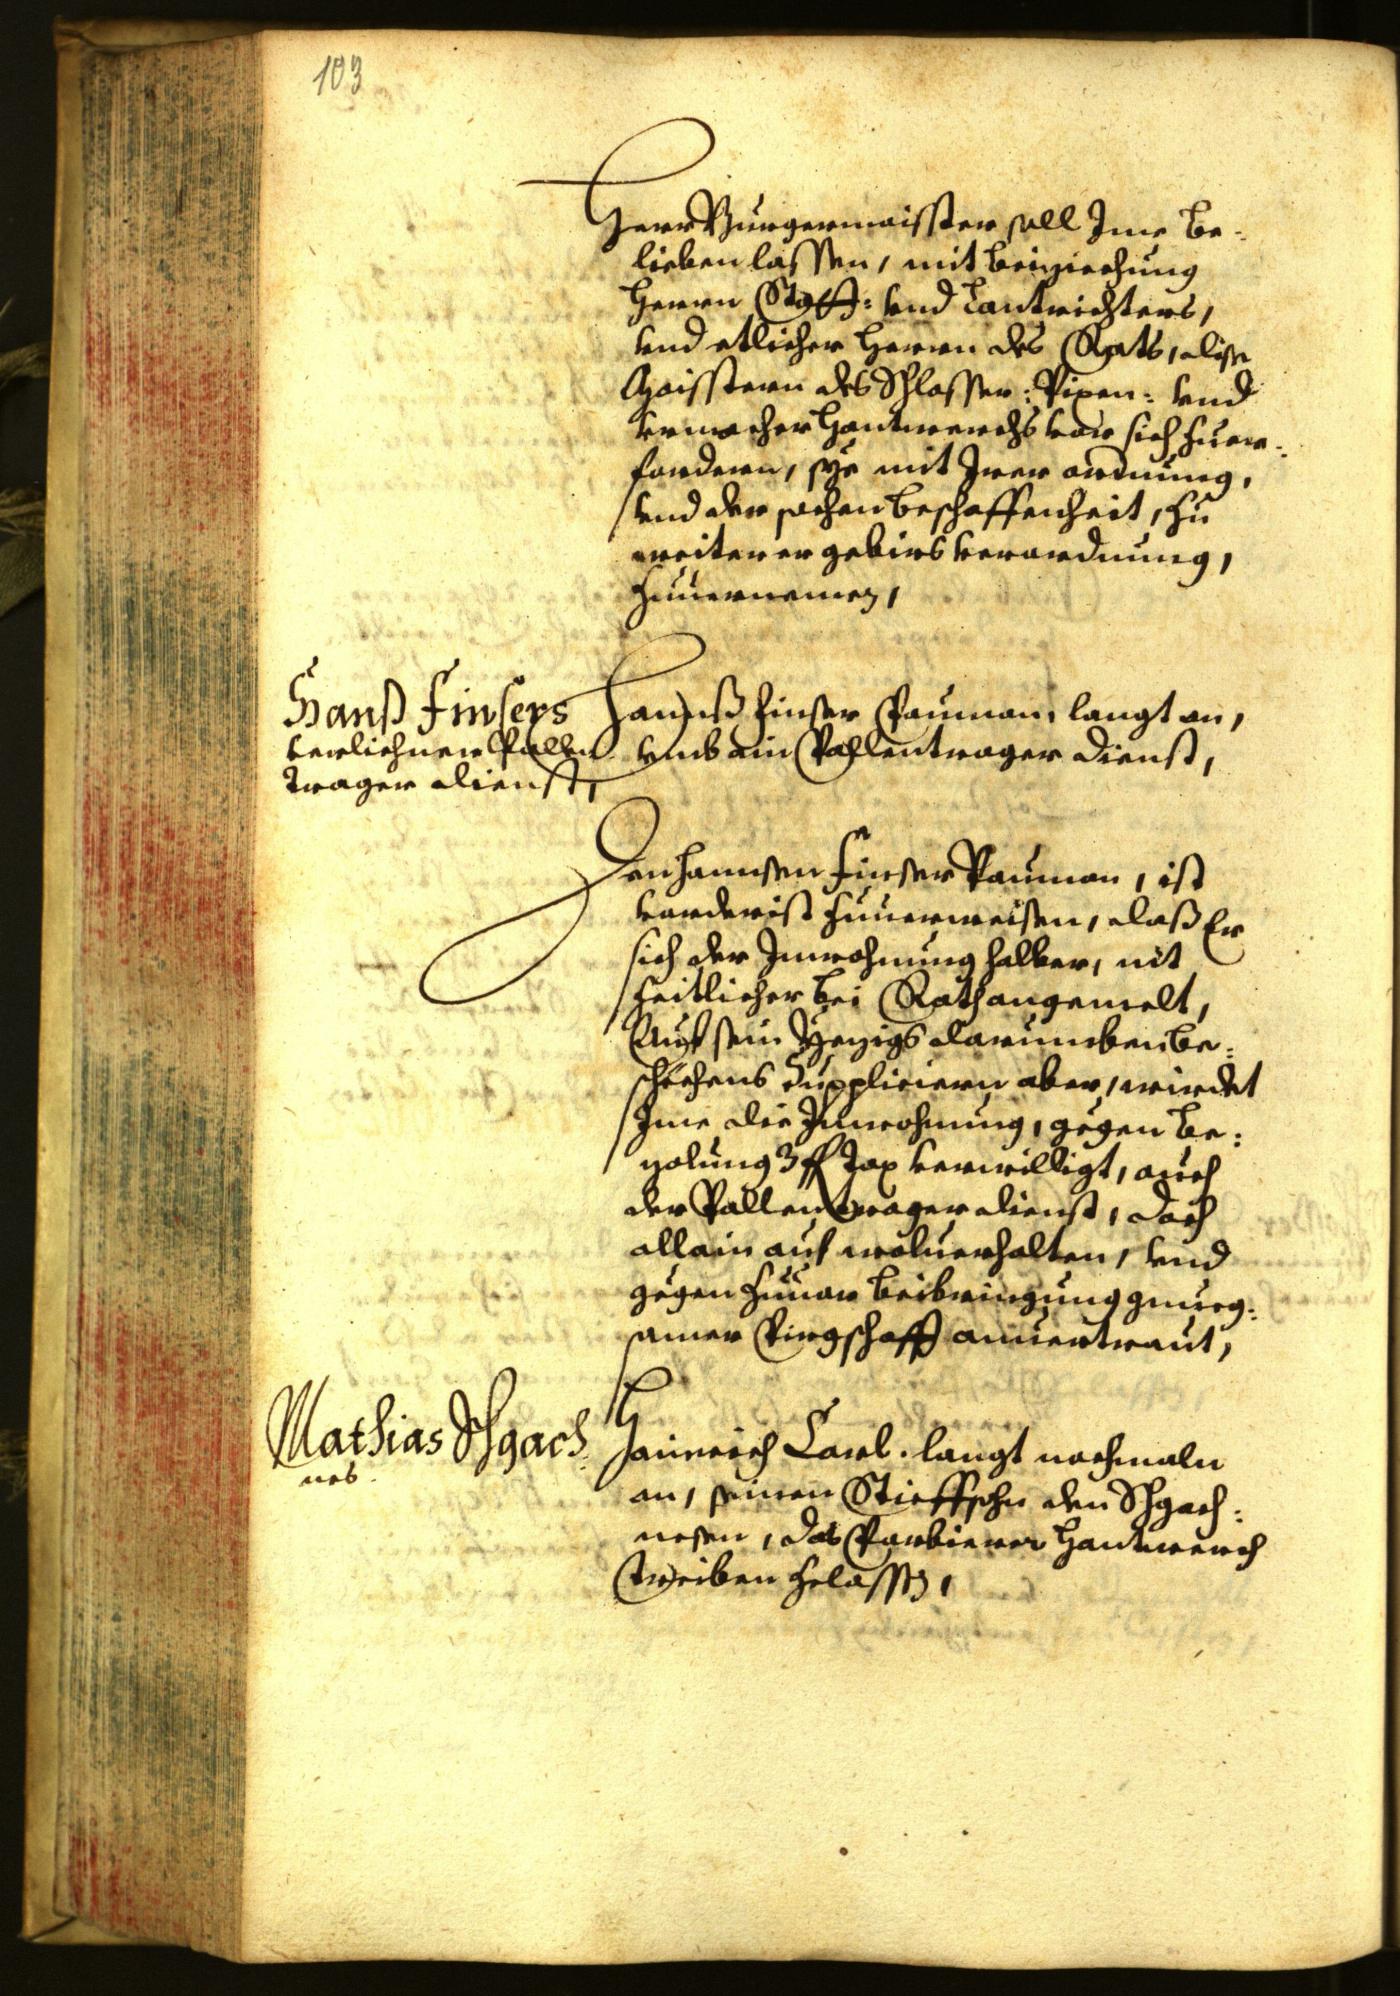 103
Herr Burgermaisster soll Ime be-
lieben lassen, mit beiziechung
Herrn Statt: vnd Lantrichters,
vnd etlicher Herrn des Rats, dise
Maisstern des Schlosser: Pixen: vnd
vrmacher Hantwerchs vor sich zuer-
fordern, sye mit Irer ordnung,
vnd der sachen beschaffenheit, zu
weiterer gebirs verordnung,
zuuernemen,
Hanß Finsers
verlichner Pallen
trager dienst,
Hannß Finser Pauman, langt an,
vmb ain Pallentrager dienst,
Den Hannsen Finser Pauman, ist
vorderist zuuerweisen, daß Er
sich der Inwohnung halber, nit
zeitlicher bei Rath angemelt,
Auf sein Yezigs darumben be-
schechens Suppliciern aber, wirdet
Ime die Inwohnung, gegen be-
zolung 3 fl Tax verwilligt, auch
der Pallentrager dienst, doch
allain auf wolverhalten, vnd
gegen zuuor beibringung gnueg-
samer Pirgschafft anuertraut,
Mathias Schgach
nes.
Hainrich Carl. langt nochmaln
an, seinen Stieffsohn den Schgach-
nesen, das Parbierer Hantwerch
treiben zelassen,